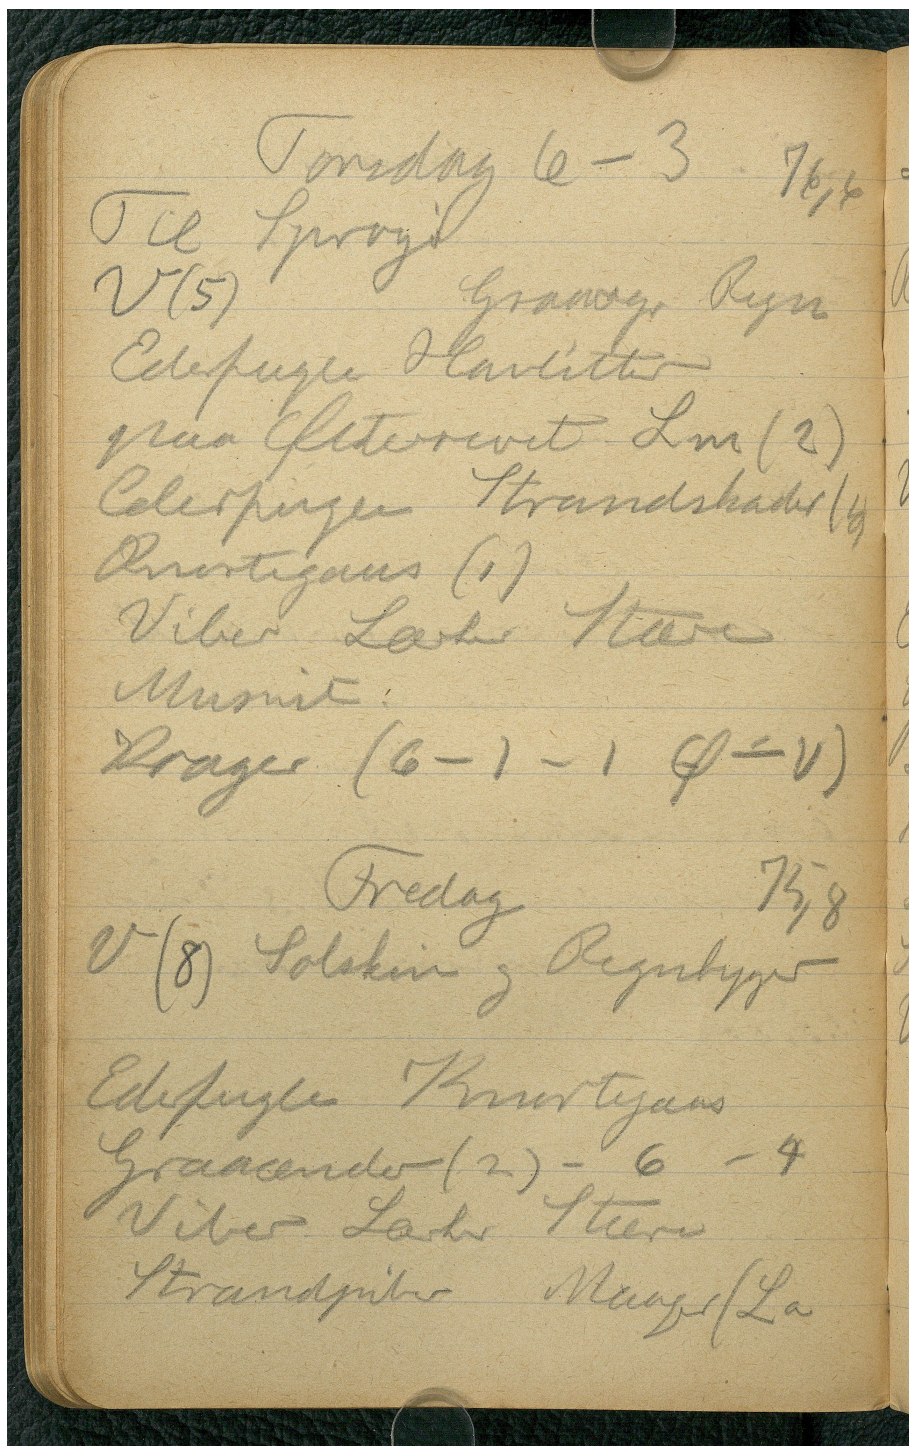 Torsdag 6-3 76,6
Til Sprogø
V(5) Graavejr, Regn
Ederfugle Havlitter
paa Østerrevet Lm (2)
Ederfugle Strandskader (
Knortegaas (1)
Viber Lærker Stære
Musvit.
Krager (6-1-1 Ø-V)
Fredag 75,8
V (8) Solskin og Regnbyger
Ederfugle Knortegaas
Graaænder (2) - 6 - 4
Viber Lærker Stære
Strandpiber Maager (La